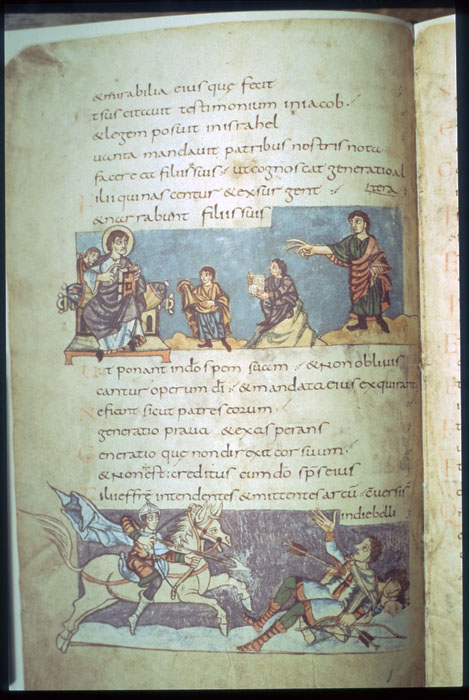 & mirabilia eius quę fecit
Et suscitauit testimonium in iacob ·
& legem posuit in israhel
Quanta mandauit patribus nostris nota
facere ea filiis suis · ut cognoscat generatio al
Filii qui nascentur & exsurgent · tera
& narrabunt filiis suis
Ut ponant in do spem suam · & non obliuis
cantur operum di · & mandata eius exquirant
Ne fiant sicut patres eorum
generatio praua & exasperans
Generatio quę non direxit cor suum ·
& non est creditus cum do sps eius
Filii effrem intendentes & mittentes arcum ·
in die belli